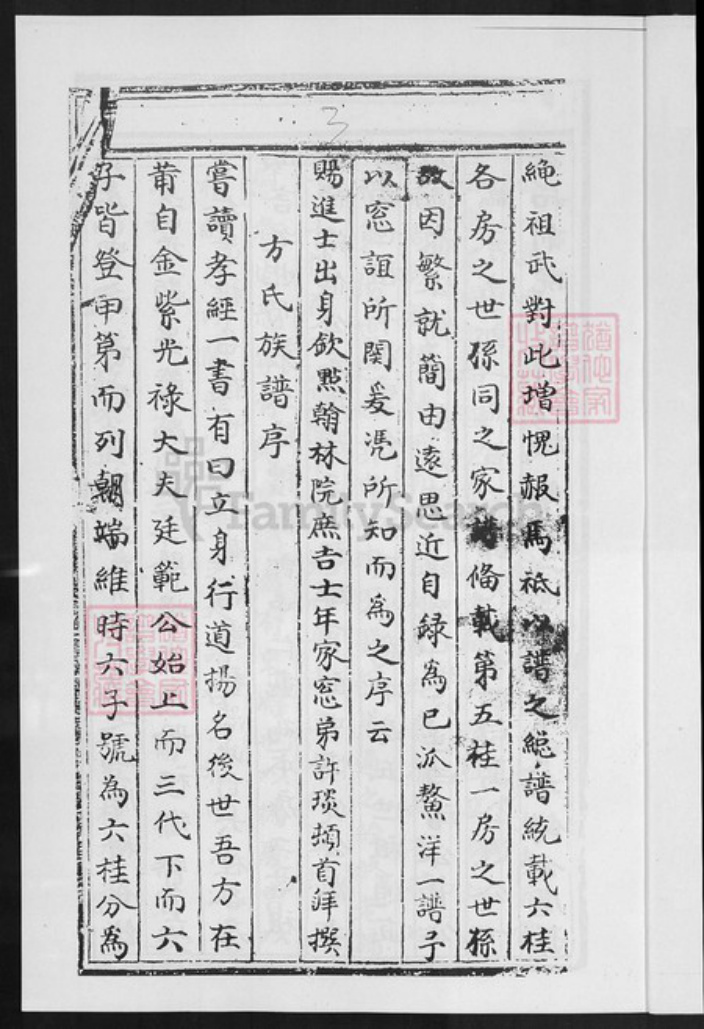 繩祖武對此增愧赧焉祗以譜之總譜統載六桂
各房之世孫同之家譜偹載第五桂一房之世孫
故因繁就簡由遠思近自録為已派鰲洋一譜予
以窓誼所関爰凴所知而為之序云
賜進士出身欽㸃翰林院庶吉士年家窓弟許琰頓首拜撰
方氏族譜序
嘗讀孝經一書有曰立身行道揚名後世吾方在
莆自金紫光祿大夫廷範公始上而三代下而六
子皆登甲第而列朝端維時六子號為六桂分為
3
FamilySearch